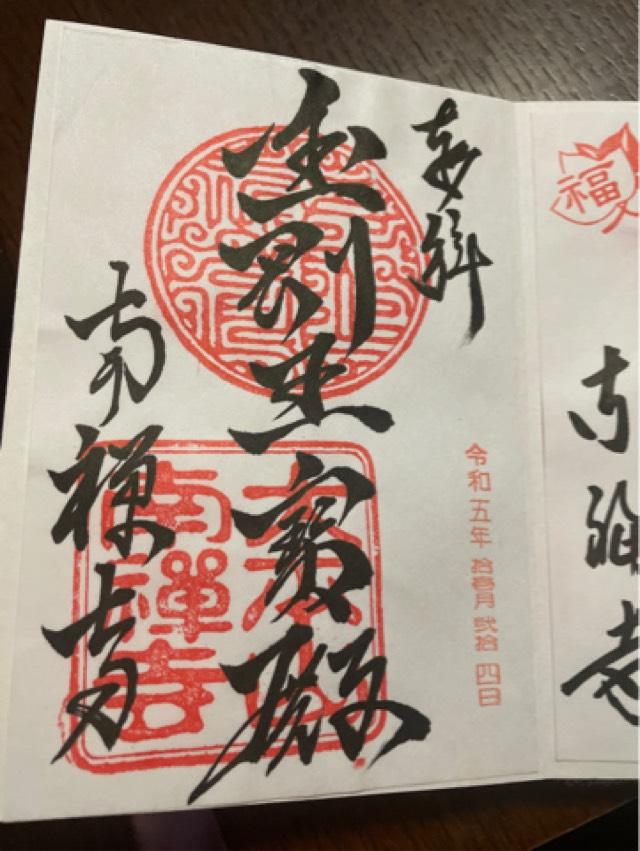 福
奉拝
令和五年 拾壱月 弐拾四日
金剛王寳殿
南禅寺
南禪寺